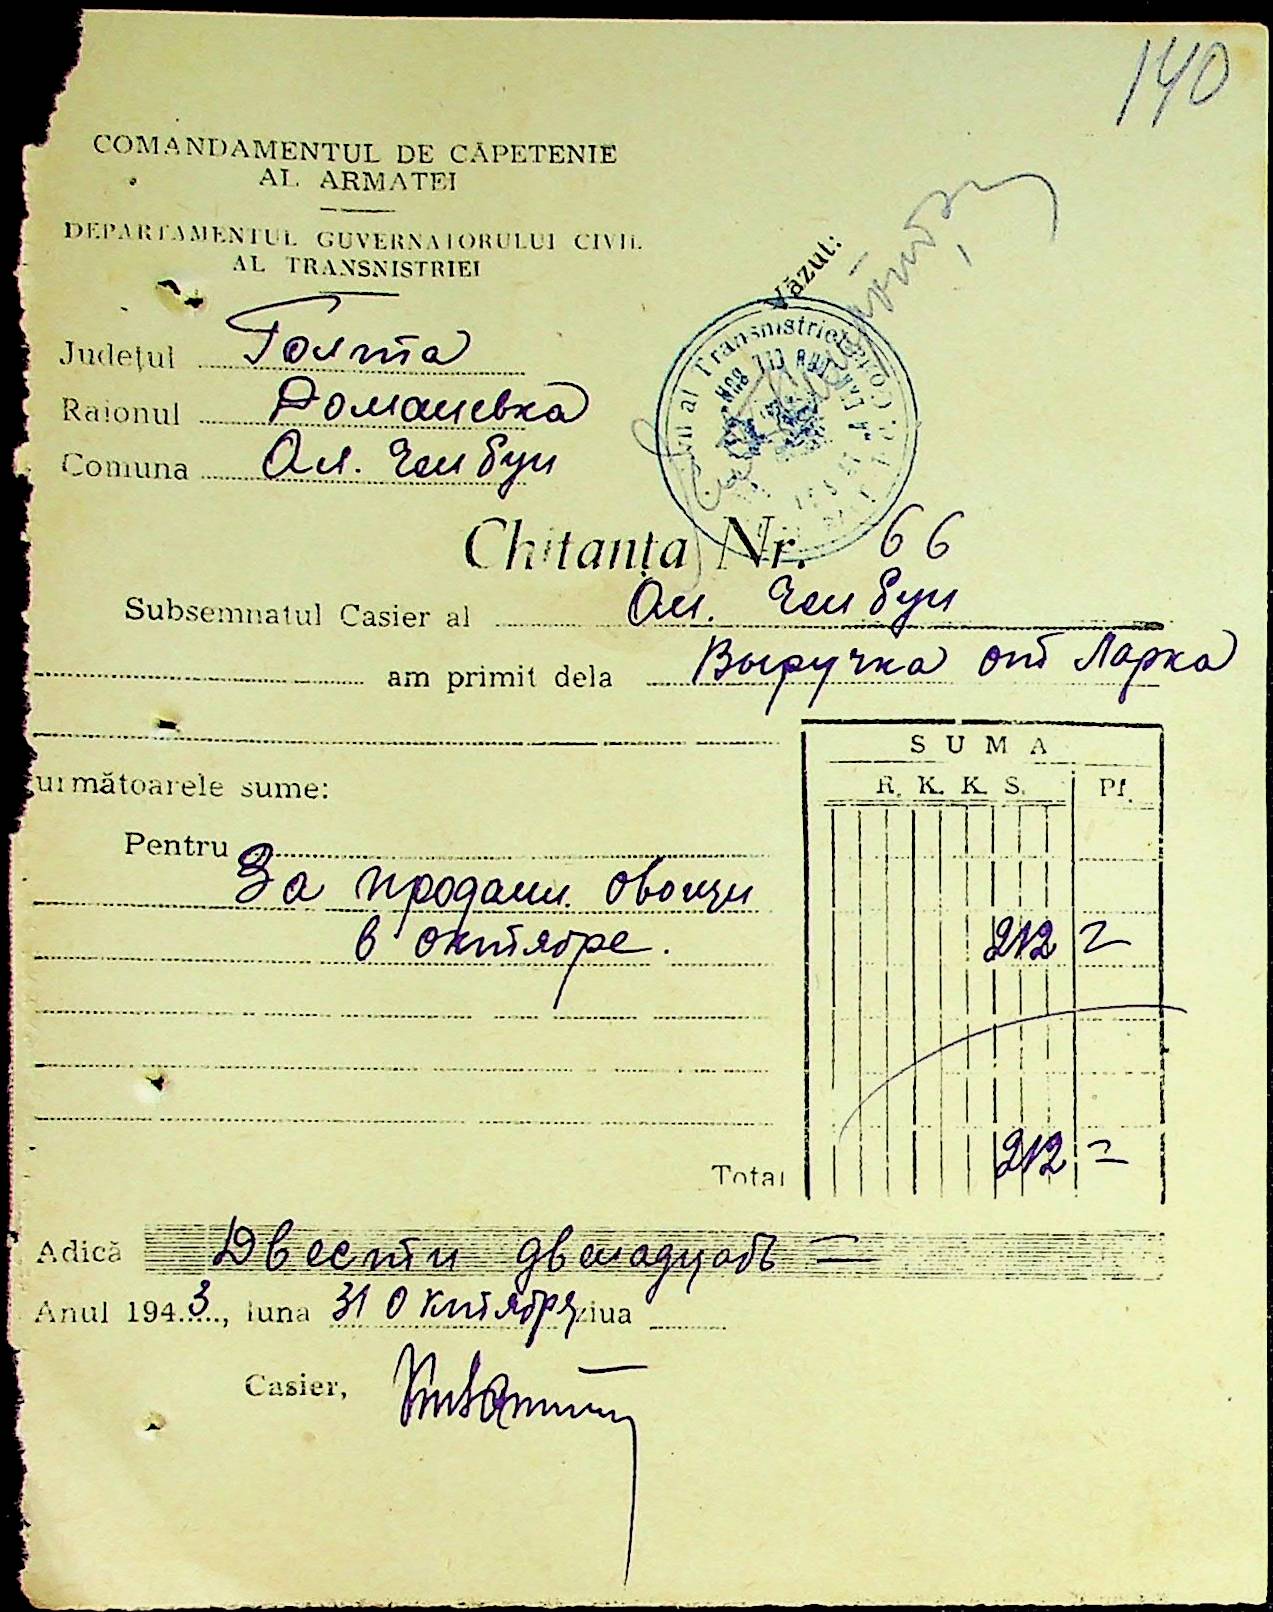 140
COMANDAMENTUL DE CĂPETENIE
AL ARMATEI
DEPARTAMENTUL GUVERNATORULUI CIVIL
AL TRANSNISTRIEI
Văzut:
Județul Голта
Raionul Доманевка
Comuna Ал.
al Transnistriei
Chitanța Nr. 66
Subsemnatul Casier al
am primit dela Выручка от Ларка
SUMA
următoarele sume:
R. K. K. S. Pf.
Pentru
За продани. овощи
в октябре. 212 =
Total 212 =
Adică Двести двенадцать =
Anul 1943, luna 31 октября ziua
Casier,